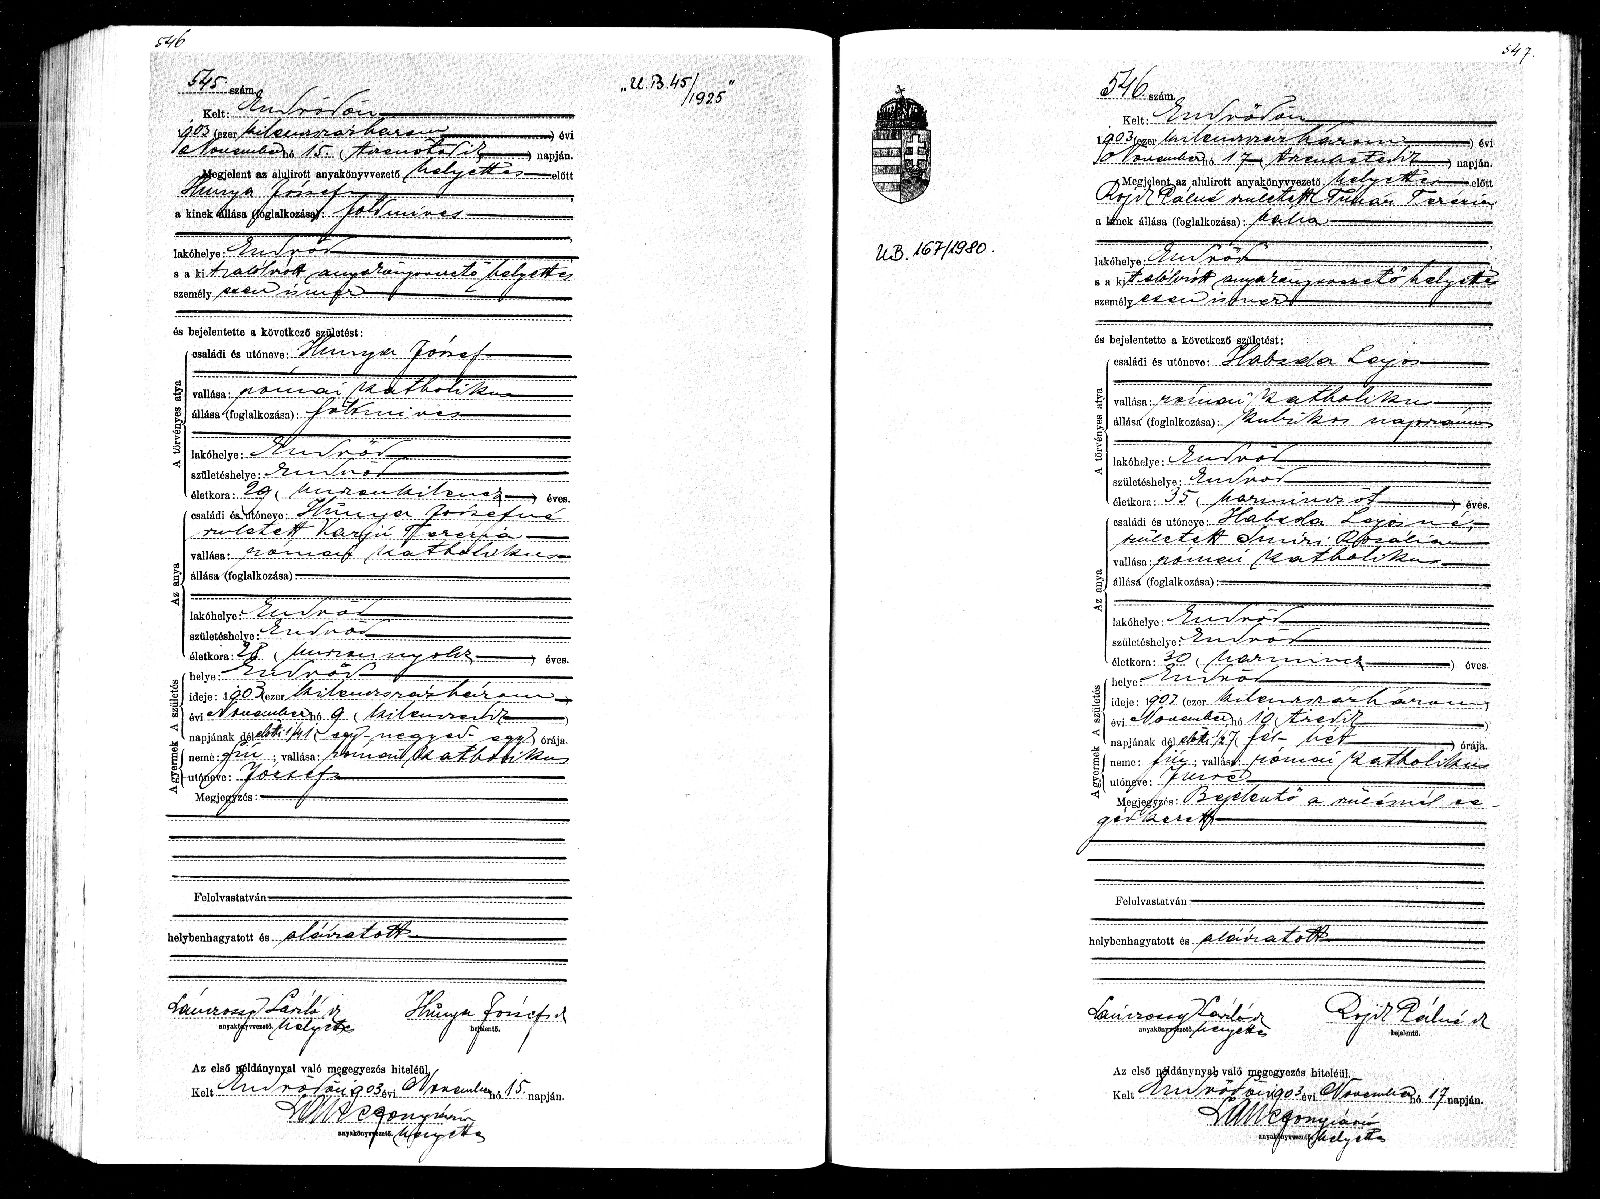 546
545 szám.
„U.B.45/1925”
Kelt: Endrődön
1903 (ezer kilenczszázhárom) évi
November hó 15. (tizenötödik) napján.
Megjelent az alulirott anyakönyvvezető helyettes előtt
Hunya József
a kinek állása (foglalkozása): földmives
lakóhelye: Endrőd
s a kit alólirott anyakönyvvezető helyettes
személyesen ismer
és bejelentette a következő születést:
A törvényes atya
családi és utóneve: Hunya József
vallása: római katholikus
állása (foglalkozása): földmives
lakóhelye: Endrőd
születéshelye: Endrőd
életkora: 29 (huszonkilencz) éves.
Az anya
családi és utóneve: Hunya Józsefné
született Varjú Terézia
vallása: római katholikus
állása (foglalkozása)
lakóhelye: Endrőd
születéshelye: Endrőd
életkora: 28 (huszonnyolcz) éves.
A születés
helye: Endrőd
ideje: 1903 (ezer kilenczszázhárom
évi November hó 9 (kilenczedik)
napjának dél előtti 1/41 (egy negyed egy) órája.
A gyermek
neme: fiú; vallása: római katholikus
utóneve: József
Megjegyzés:
Felolvastatván
helybenhagyatott és aláíratott
László
anyakönyvvezető helyettes
Hunya József
bejelentő.
Az első példánynyal való megegyezés hiteléül.
Kelt Endrődön 1903 évi November hó 15 napján.
anyakönyvvezető helyettes
547.
546 szám.
Kelt: Endrődön
1903 (ezer kilenczszázhárom) évi
November hó 17 (tizenhetedik) napján.
Megjelent az alulirott anyakönyvvezető helyettes előtt
Rojik Pálné született Tukán Terézia
a kinek állása (foglalkozása): bába
UB. 167/1980.
lakóhelye: Endrőd
s a kit alólirott anyakönyvvezető helyettes
személyesen ismer
és bejelentette a következő születést:
A törvényes atya
családi és utóneve: Habsda Lajos
vallása: római katholikus
állása (foglalkozása): kubikos napszámos
lakóhelye: Endrőd
születéshelye: Endrőd
életkora: 35 (harminczöt) éves.
Az anya
családi és utóneve: Habsda Lajosné
született Rozália
vallása: római katholikus
állása (foglalkozása):
lakóhelye: Endrőd
születéshelye: Endrőd
életkora: 30 (harmincz) éves.
A születés
helye: Endrőd
ideje: 1903 (ezer kilenczszázhárom)
évi November hó 10 (tizedik)
napjának dél előtti 1/27 (fél hét) órája.
A gyermek
neme: fiú; vallása: római katholikus
utóneve: Imre
Megjegyzés: Bejelentő a szülésnél se-
gédkezett
Felolvastatván
helybenhagyatott és aláíratott
László
anyakönyvvezető helyettes
Rojik Pálné
bejelentő.
Az első példánynyal való megegyezés hiteléül.
Kelt Endrődön 1903 évi November hó 17 napján.
anyakönyvvezető helyettes